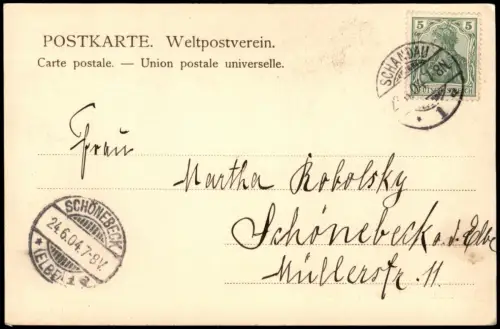 POSTKARTE. Weltpostverein.
Carte postale. — Union postale universelle.
5 5
SCHANDAU
1
Frau
Martha Robolsky
Schönebeck a. d. Elbe
Müllerstr. 11.
SCHÖNEBECK
24.6.04.7-8V.
* (ELBE)